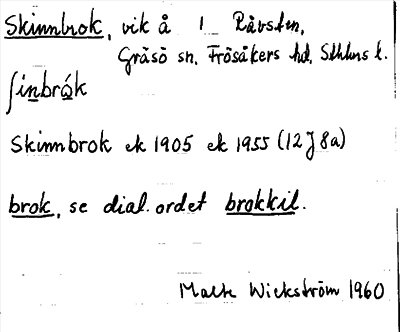 Skinnbrok, vik å 1 Rävsten,
Gräsö sn, Frösåkers hd, Sthlms l.
ʃinbrók
Skinnbrok ek 1905 ek 1955 (12J 8a)
brok, se dial. ordet brokkil.
Malte Wickström 1960